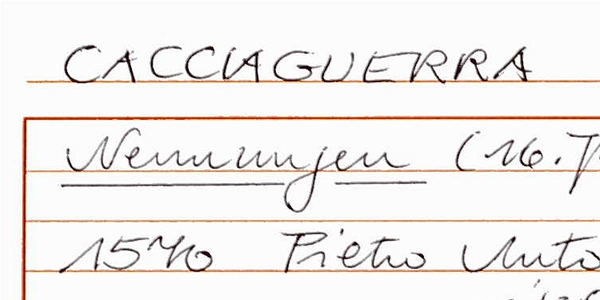 CACCIAGUERRA
Nennungen (16.J
1570 Pietro Anto